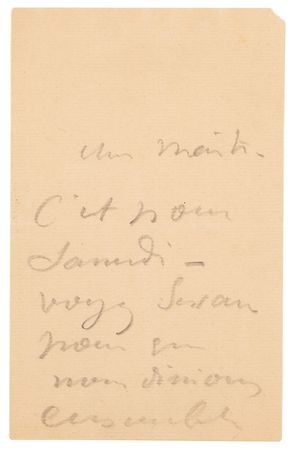 Mon Maître.
C'est pour
Samedi –
voyez Sescau
pour que
nous dinions
ensemble